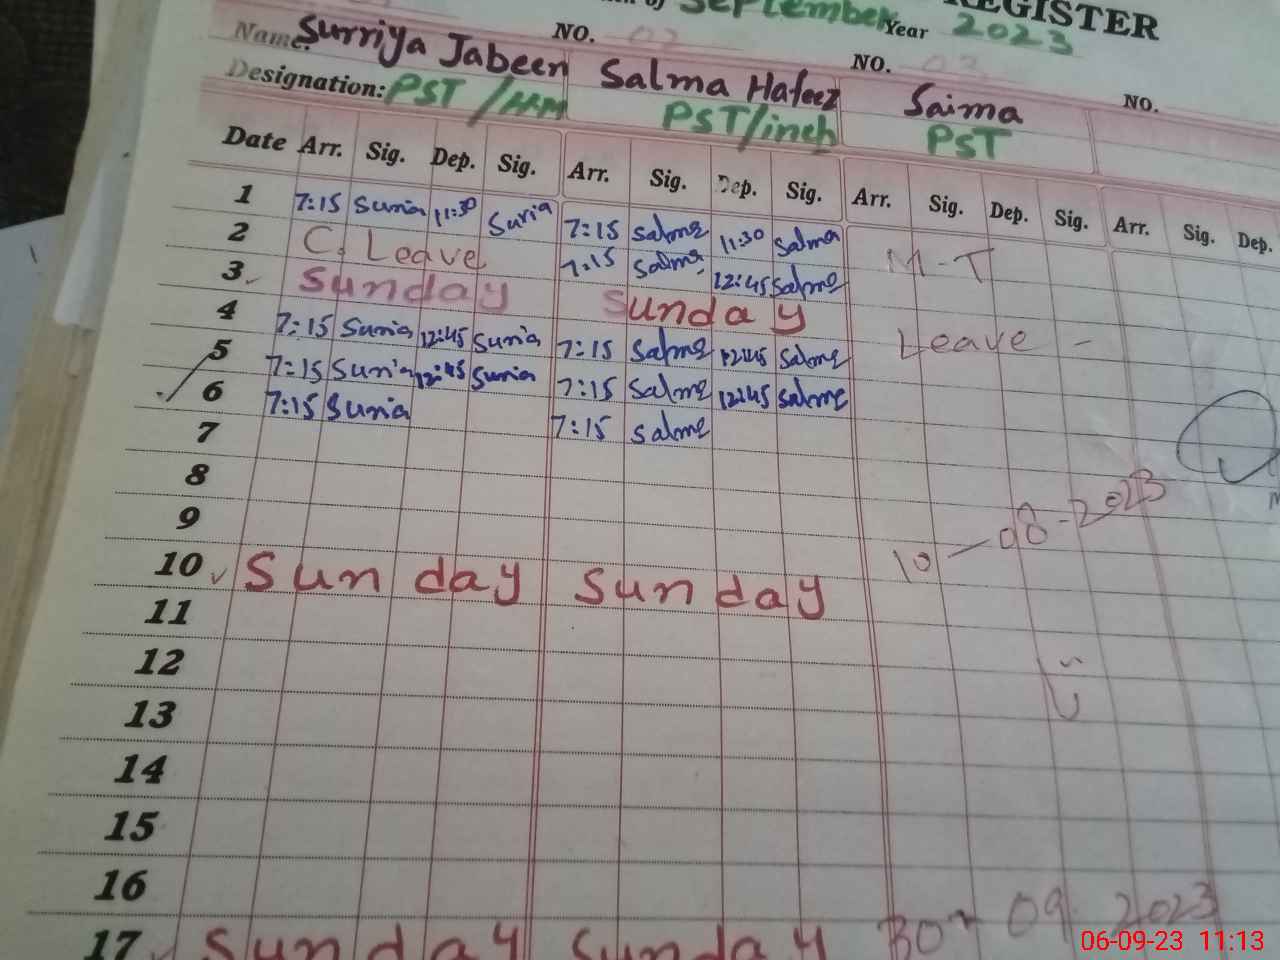 REGISTER
of September Year 2023
Name: Surriya Jabeen NO. 02 Salma Hafeez NO. 03 Saima NO.
Designation: PST /HM PST/inch PST
Date Arr. Sig. Dep. Sig. Arr. Sig. Dep. Sig. Arr. Sig. Dep. Sig. Arr. Sig. Dep.
1 7:15 Suria 11:30 Suria 7:15 Salma 11:30 Salma
2 C. Leave 7:15 Salma 12:45 Salma M-T
3 Sunday Sunday
4 7:15 Suria 12:45 Suria 7:15 Salma 12:45 Salma Leave -
5 7:15 Suria 12:45 Suria 7:15 Salma 12:45 Salma
6 7:15 Suria 7:15 Salma
7
8
9 10-08-2023
10 Sunday Sunday
11
12
13
14
15
16
17 Sunday Sunday 30-09-2023
06-09-23 11:13